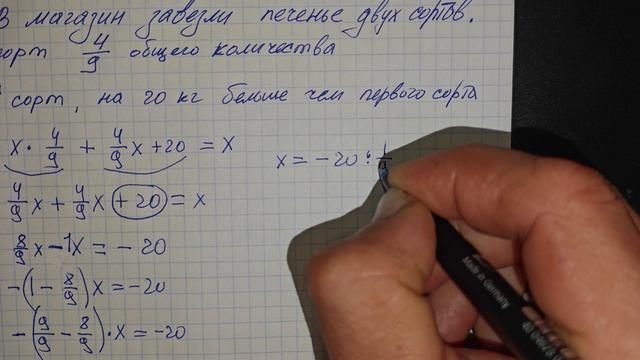 В магазин завезли печенье двух сортов.
сорт 4/9 общего количества
сорт, на 20 кг больше чем первого сорта
x · 4/9 + 4/9 x + 20 = x
4/9 x + 4/9 x + 20 = x
8/9 x - 1x = - 20
-(1 - 8/9) x = -20
-(9/9 - 8/9) · x = -20
x = - 20 :
Made in Germany